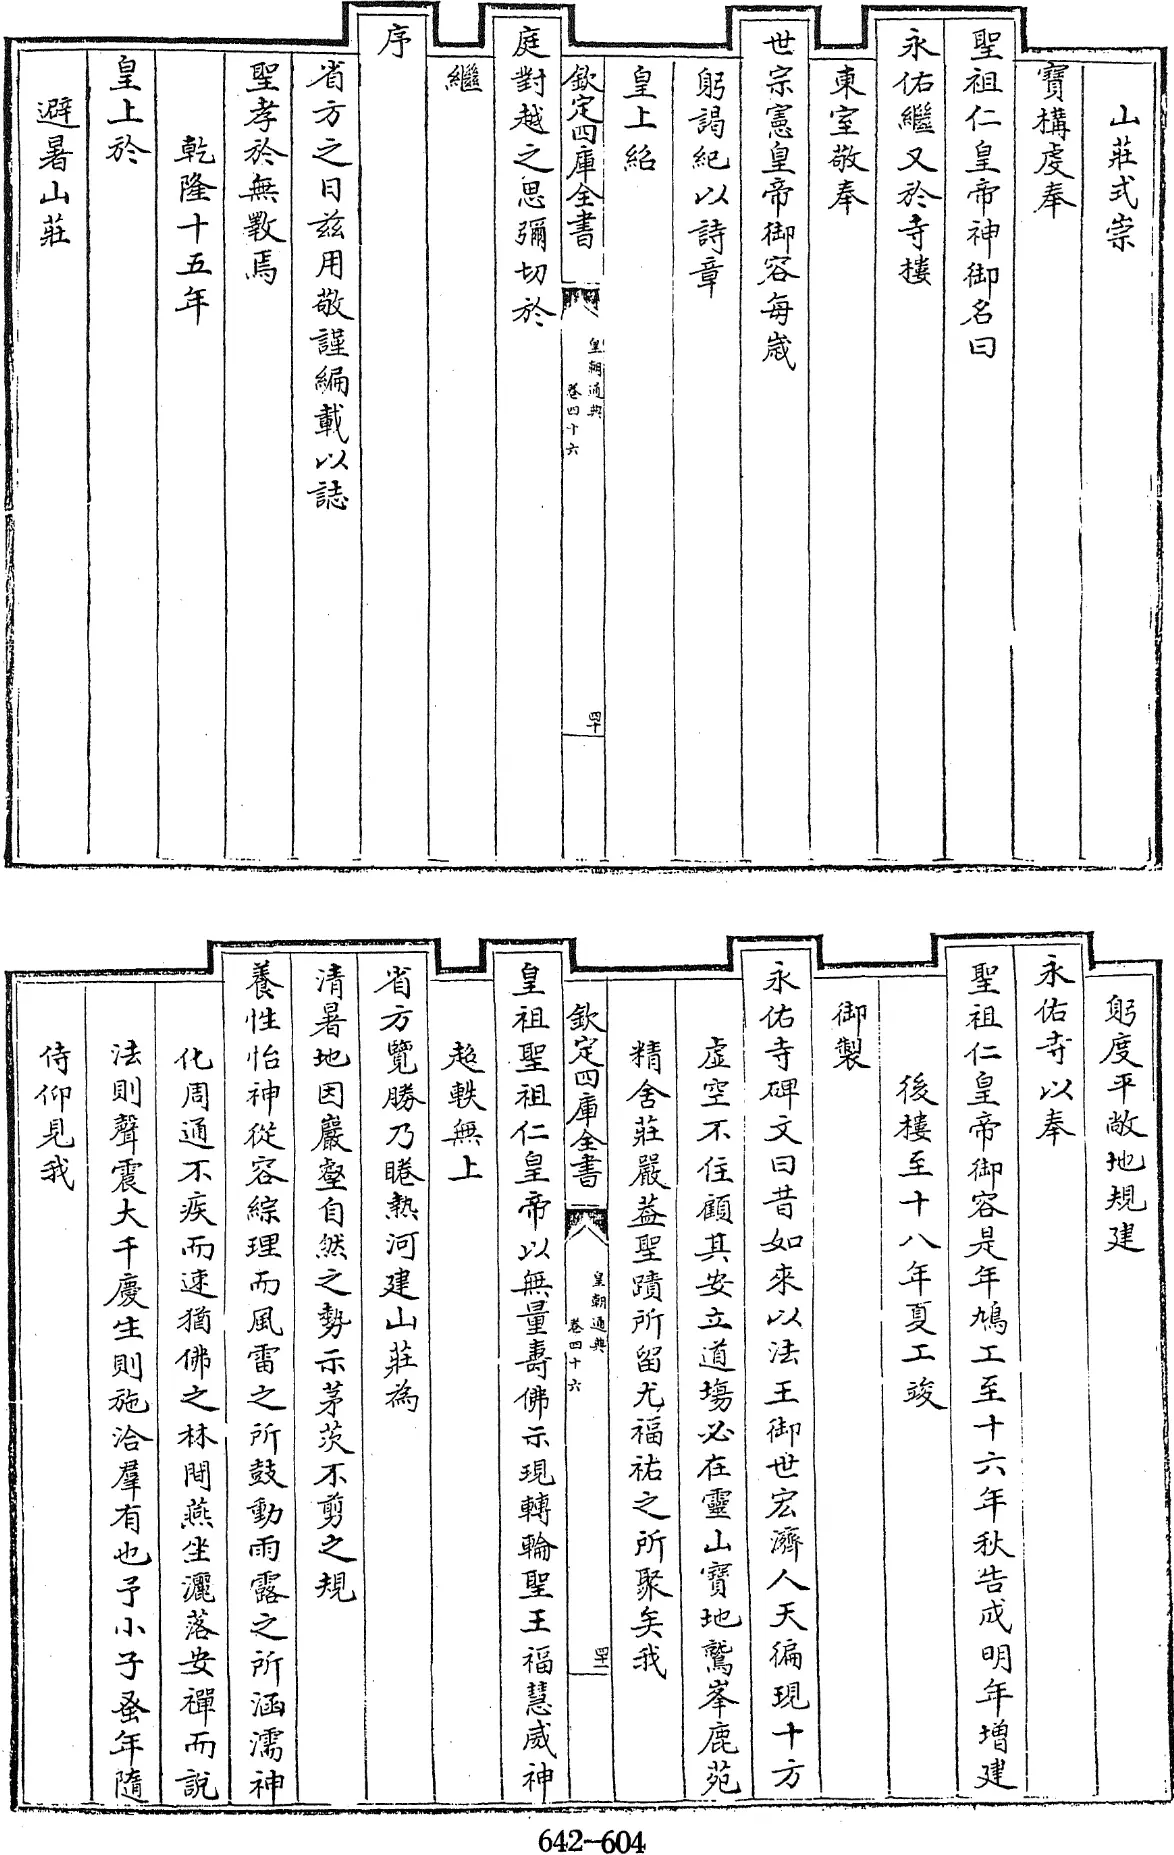 山莊式崇
寶構虔奉
聖祖仁皇帝神御名曰
永佑繼又於寺樓
東室敬奉
世宗憲皇帝御容每歲
躬謁紀以詩章
皇上紹
欽定四庫全書
皇朝通典
卷四十六
四十
庭對越之思彌切於
繼
序
省方之日茲用敬謹編載以誌
聖孝於無斁焉
乾隆十五年
皇上於
避暑山莊
躬度平敞地規建
永佑寺以奉
聖祖仁皇帝御容是年鳩工至十六年秋告成明年增建
後樓至十八年夏工竣
御製
永佑寺碑文曰昔如來以法王御世宏濟人天徧現十方
虛空不住顧其安立道塲必在靈山寶地鷲峯鹿苑
精舍莊嚴葢聖蹟所留尤福祐之所聚矣我
欽定四庫全書
皇朝通典
卷四十六
四十一
皇祖聖祖仁皇帝以無量壽佛示現轉輪聖王福慧威神
超軼無上
省方覽勝乃睠熱河建山莊為
清暑地因巖壑自然之勢示茅茨不剪之規
養性怡神從容綜理而風雷之所鼓動雨露之所涵濡神
化周通不疾而速猶佛之林間燕坐灑落安禪而說
法則聲震大千慶生則施洽羣有也予小子蚤年隨
侍仰見我
642-604